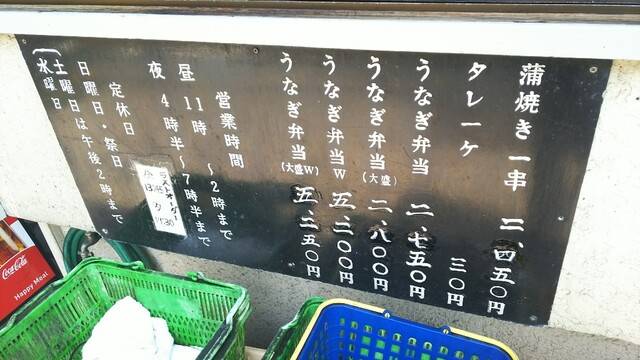 蒲焼き一串 二、四五〇円
タレ一ケ 三〇円
うなぎ弁当 二、七五〇円
うなぎ弁当(大盛) 二、八〇〇円
うなぎ弁当W 五、二〇〇円
うなぎ弁当(大盛W) 五、二五〇円
営業時間
昼 11時 〜2時まで
夜 4時半〜7時半まで
ラストオーダー
定休日
日曜日・祭日
土曜日は午後2時まで
水曜日
Coca-Cola
Happy Meal